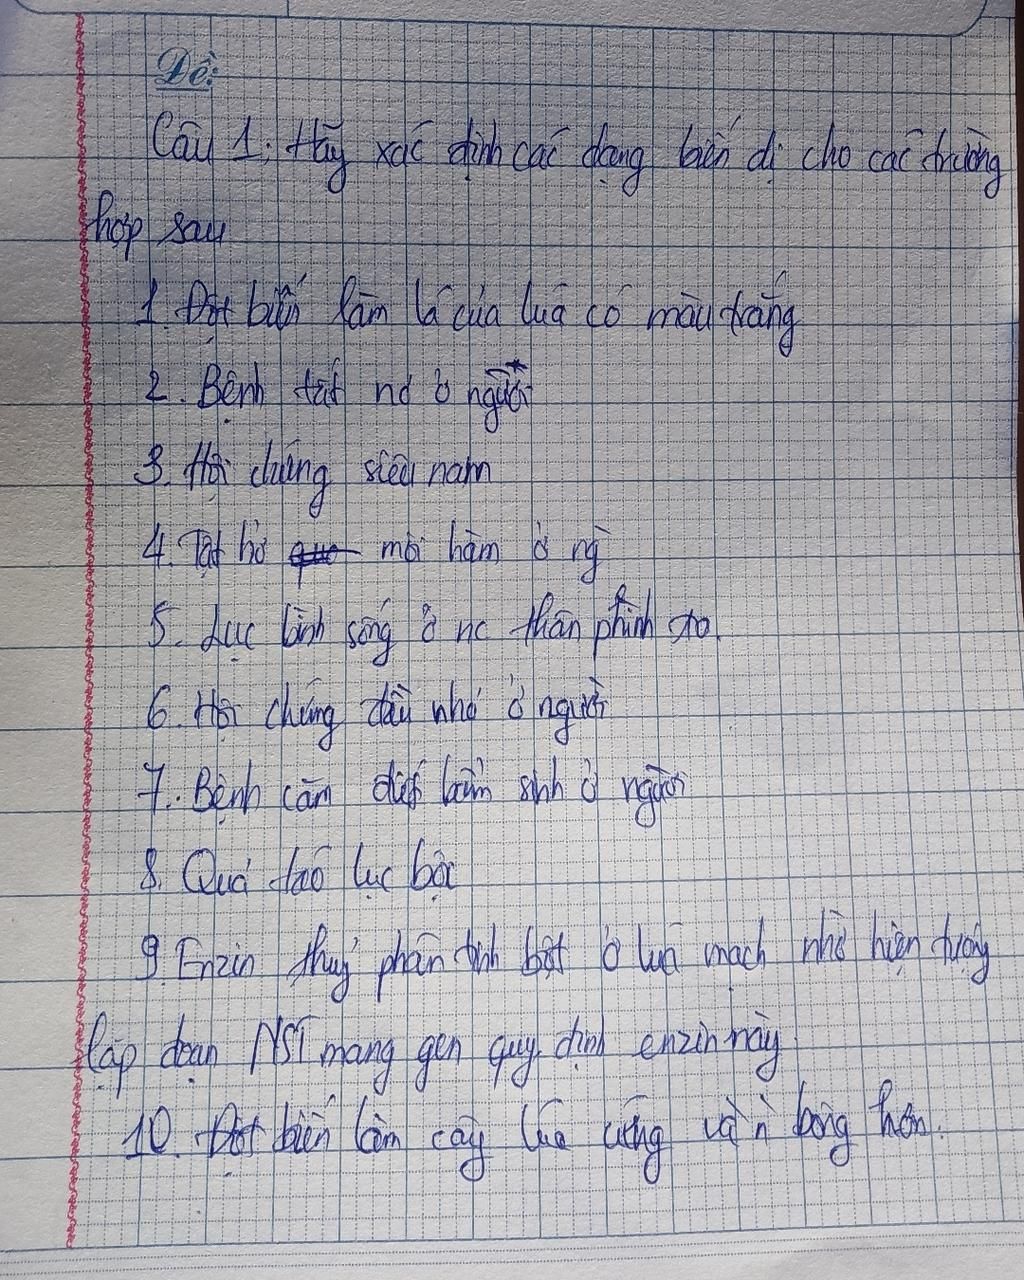 Đề:
Câu 1: Hãy xác định các dạng biến dị cho các trường
hợp sau
1. Đột biến làm lá của luá có màu trắng
2. Bệnh tất nơ ở người
3. Hội chứng siêu nam
4. Tật hở môi hàm ở ng
5. Lục bình sống ở nc thân phình to.
6. Hội chứng đầu nhỏ ở người
7. Bệnh câm điếc bẩm sinh ở người
8. Quả táo lục bội
9. Enzin thuỷ phân tinh bột ở luá mạch nhờ hiện tượng
lặp đoạn NST mang gen quy định enzin này.
10. Đột biến làm cây lúa cứng và n` bông hơn.